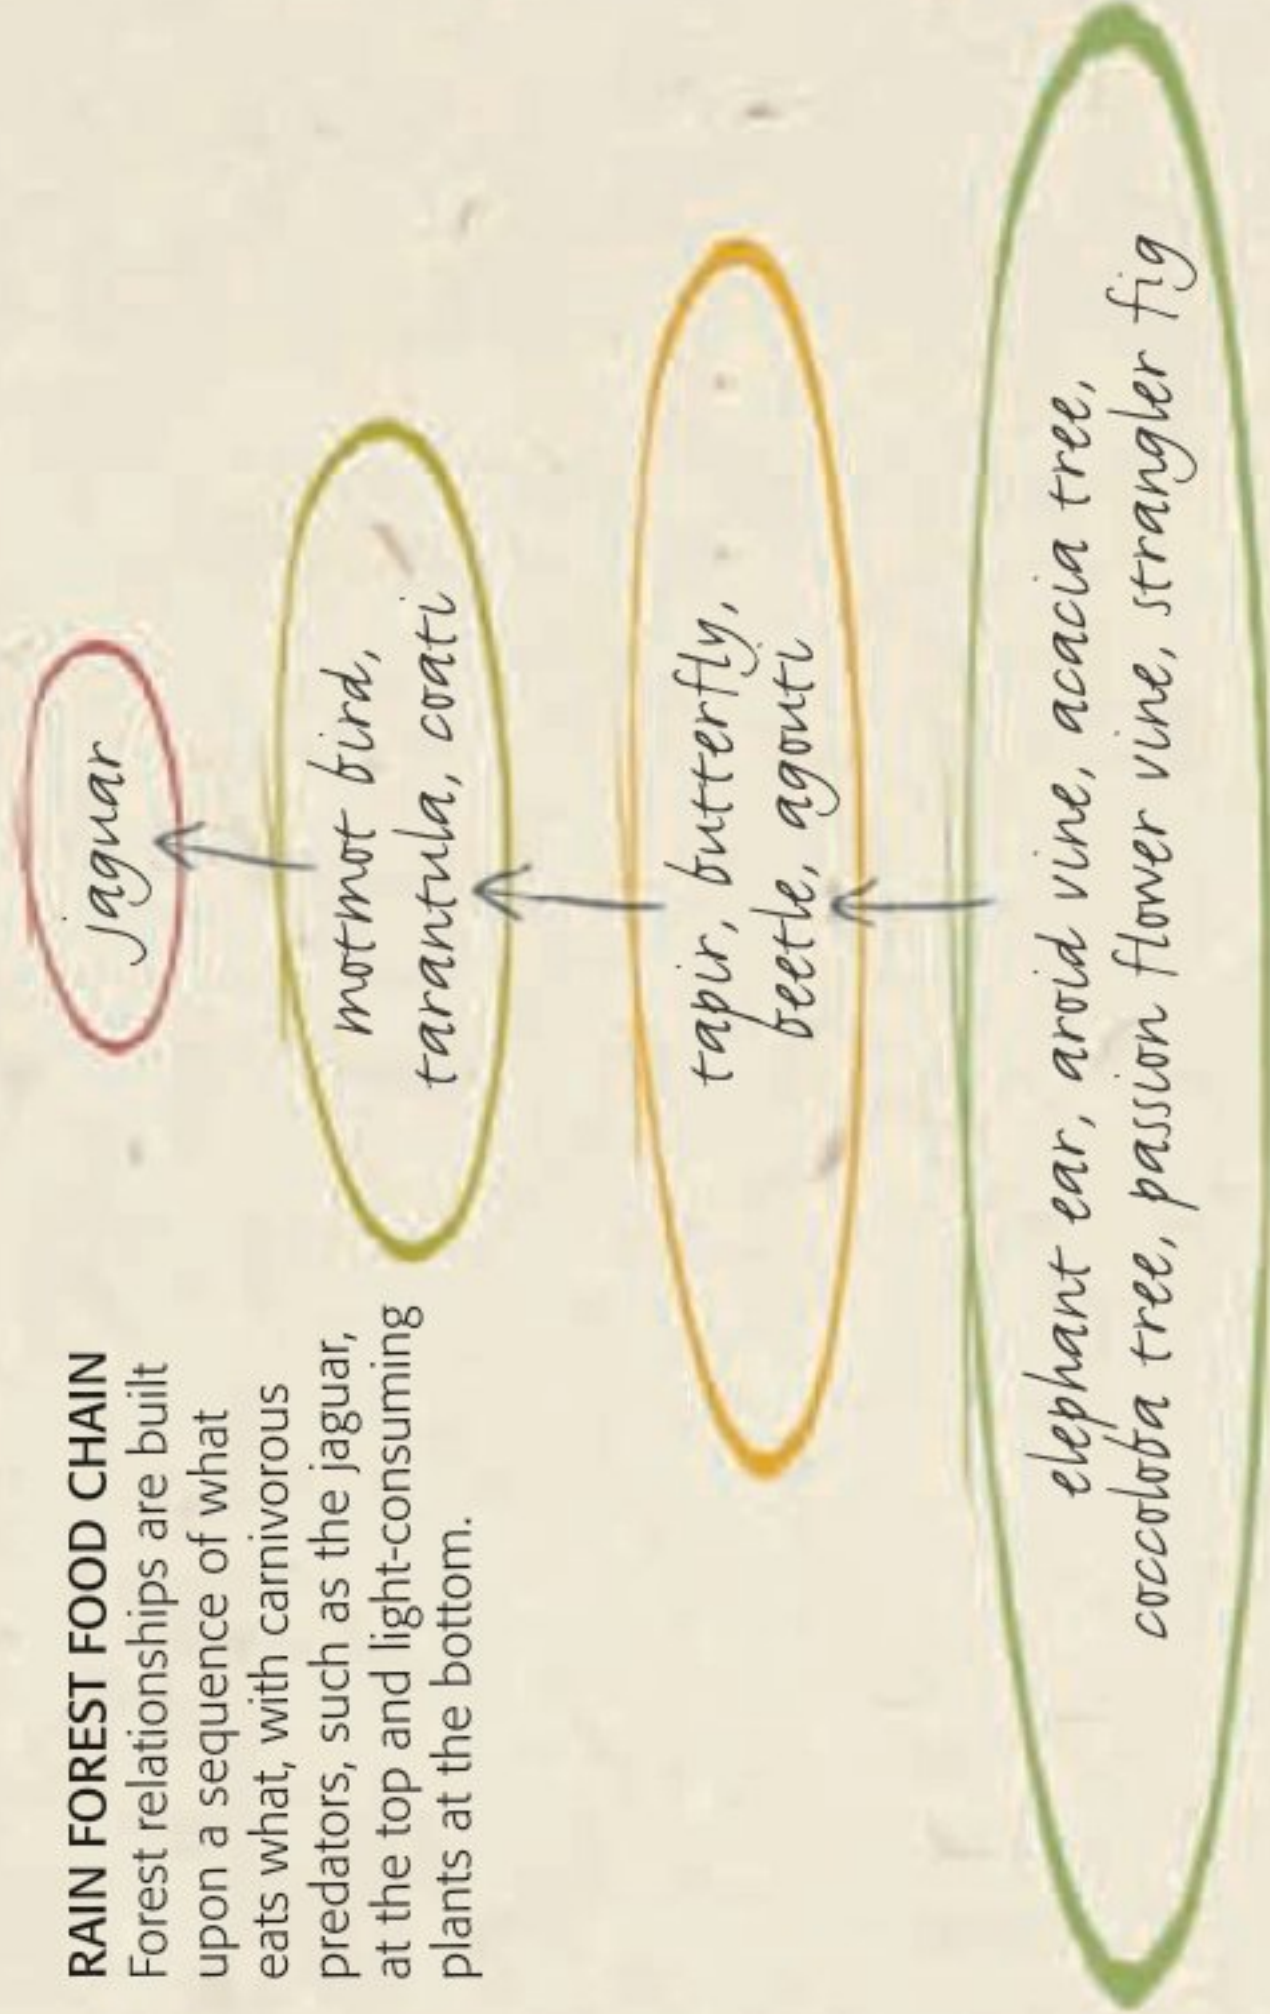 RAIN FOREST FOOD CHAIN
Forest relationships are built
upon a sequence of what
eats what, with carnivorous
predators, such as the jaguar,
at the top and light-consuming
plants at the bottom.
jaguar
motmot bird,
tarantula, coati
tapir, butterfly,
beetle, agouti
elephant ear, aroid vine, acacia tree,
coccoloba tree, passion flower vine, strangler fig